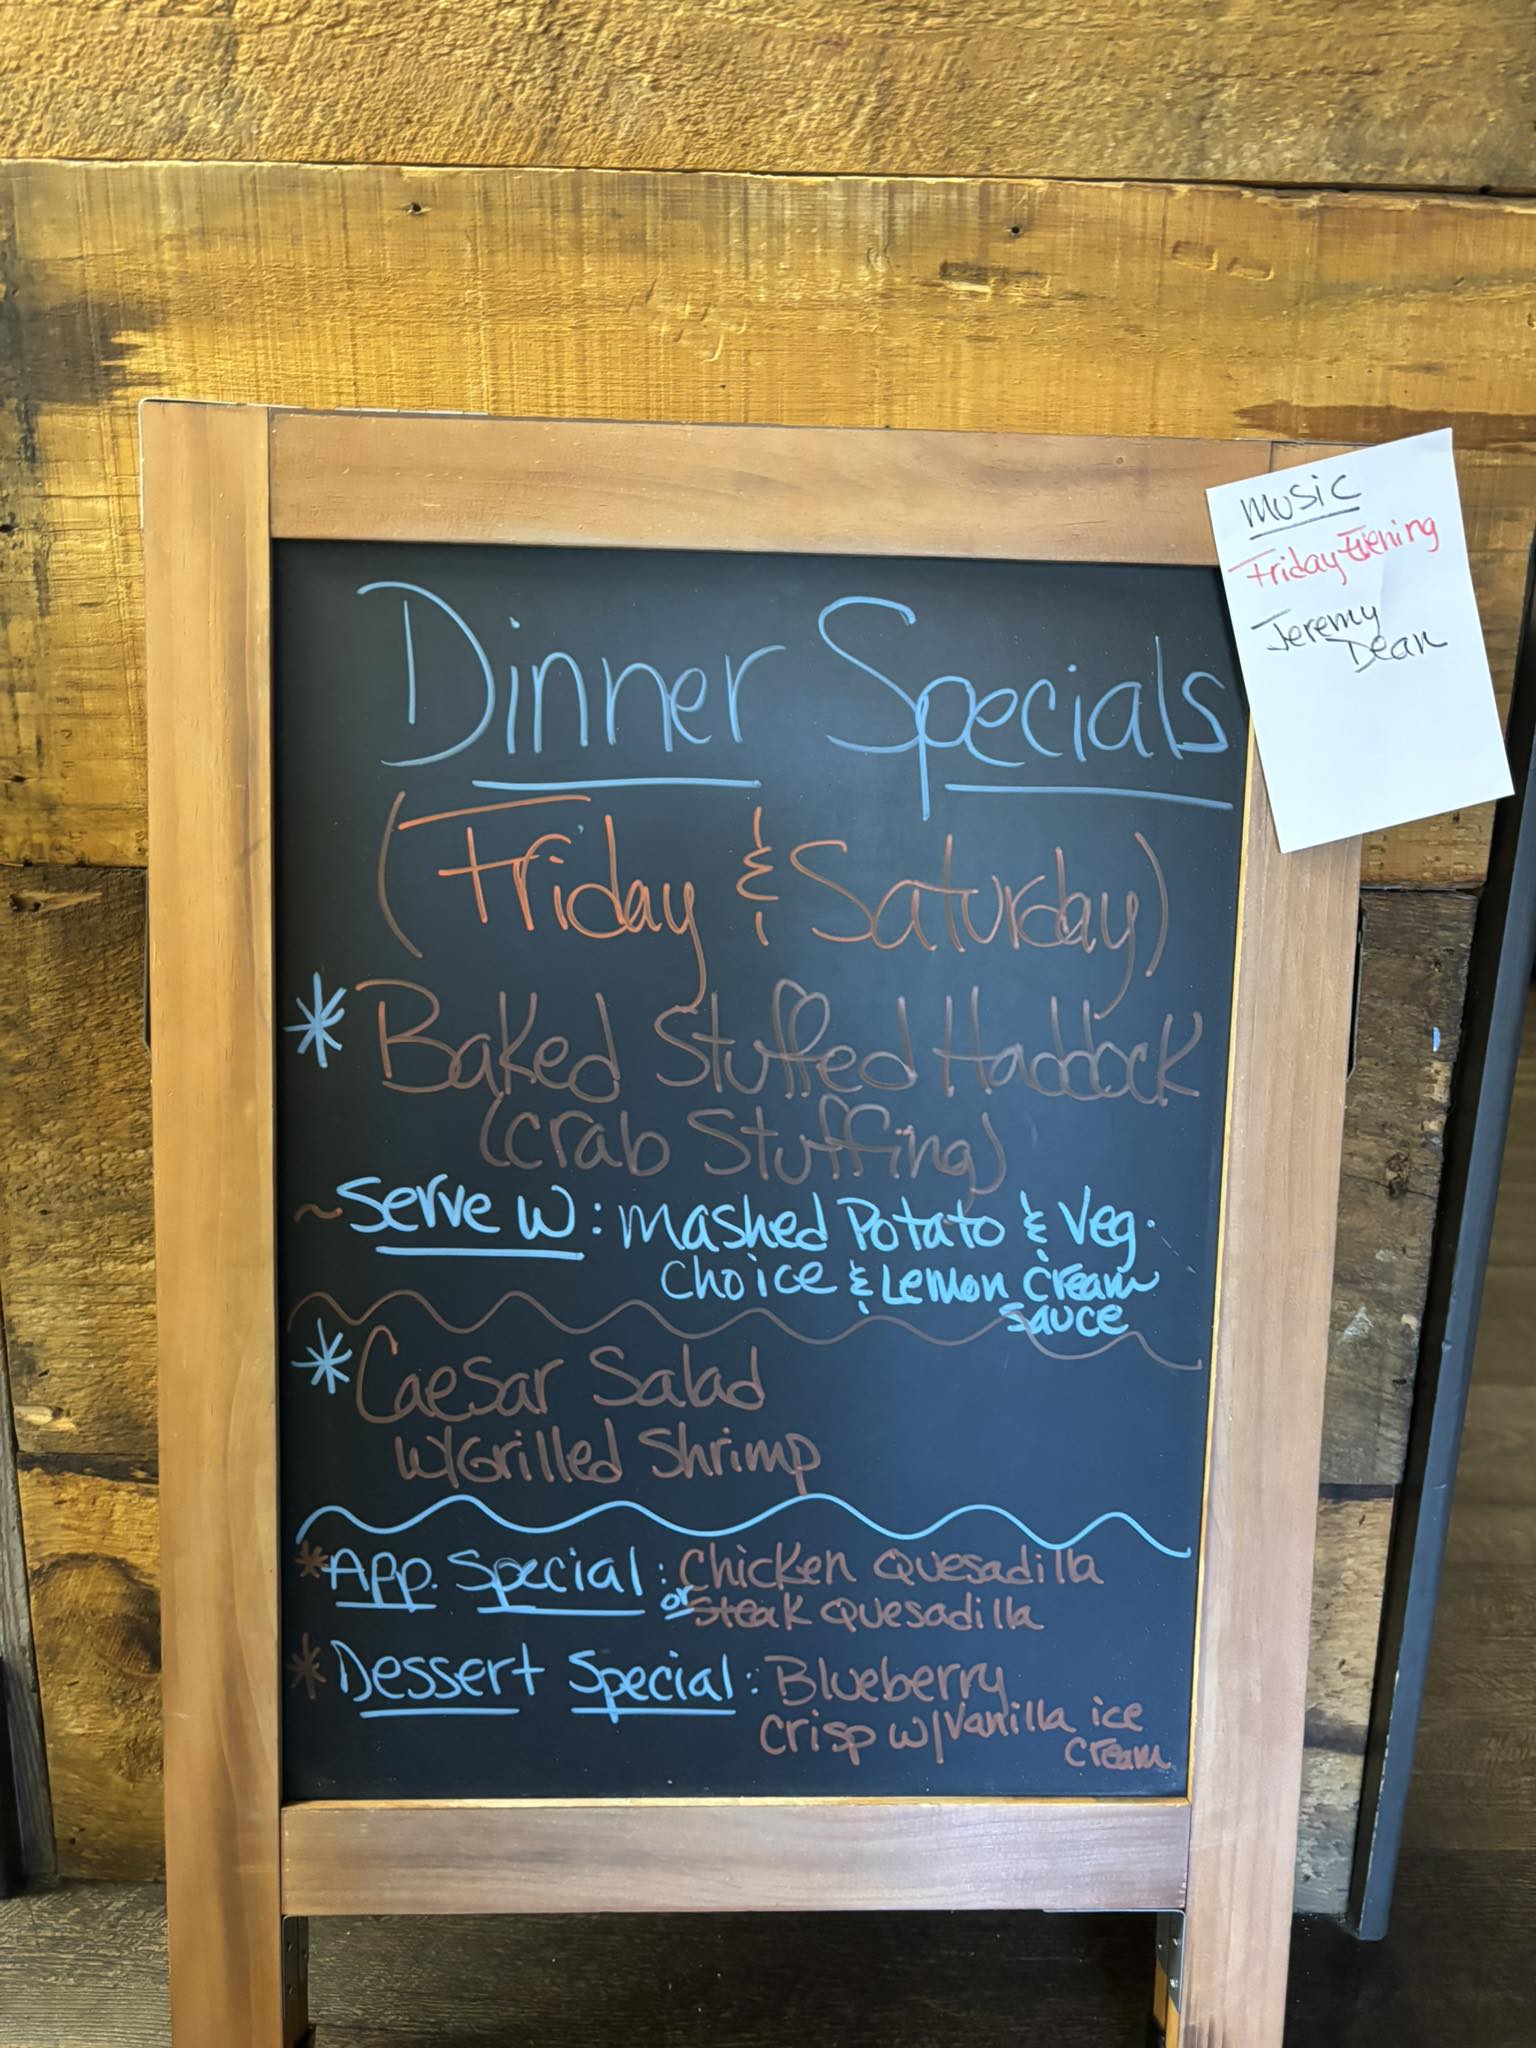 Music
Friday Evening
Jeremy
Dean
Dinner Specials
(Friday & Saturday)
* Baked Stuffed Haddock
(Crab Stuffing)
~ Serve W: Mashed Potato & Veg.
Choice & Lemon Cream
Sauce
* Caesar Salad
W/Grilled Shrimp
* App. Special: Chicken Quesadilla
or Steak Quesadilla
* Dessert Special: Blueberry
Crisp w/Vanilla ice
cream